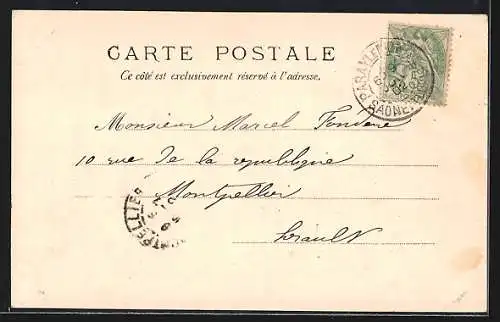 CARTE POSTALE
Ce côté est exclusivement réservé à l'adresse.
PARAY-LE
SAONE
Monsieur Marcel
10 rue de la republique
Montpellier
Herault
MONTPELLIER